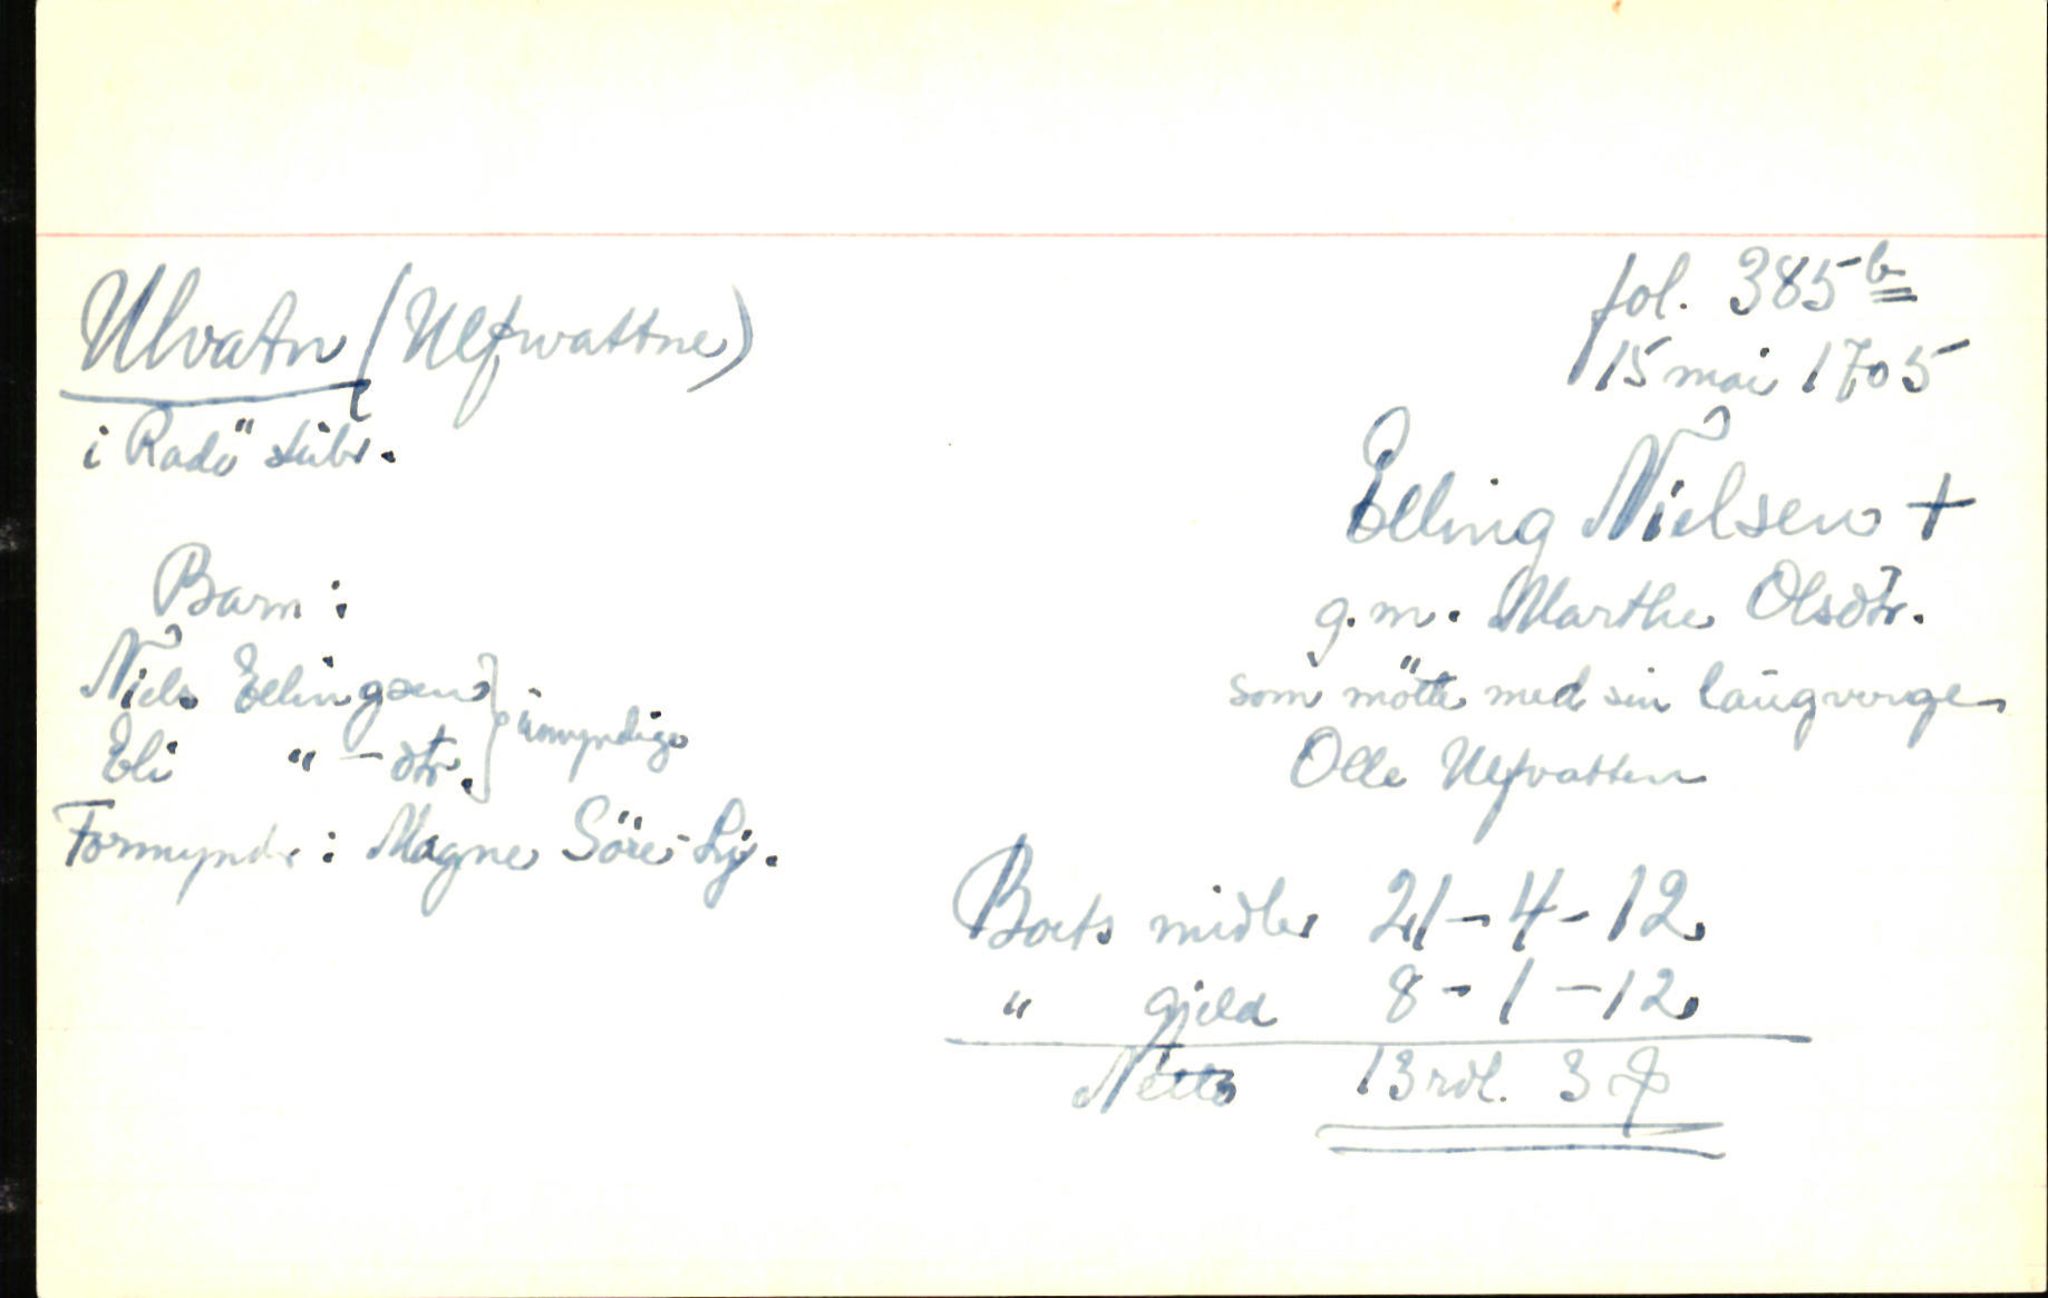 Ulvatn (Ulfwattne)
i Radö skibr.
fol. 385b
15 mai 1705
Elling Nielsen +
g.m. Marthe Olsdtr.
som mötte med sin laugverge
Olle Ulfvatten
Barn:
Niels Ellingsen } umyndige
Eli " - dtr.
Formyndr: Magne Söre-Ly.
Boets midler 21-4-12
" gjeld 8-1-12
Netto 13 rdl. 3